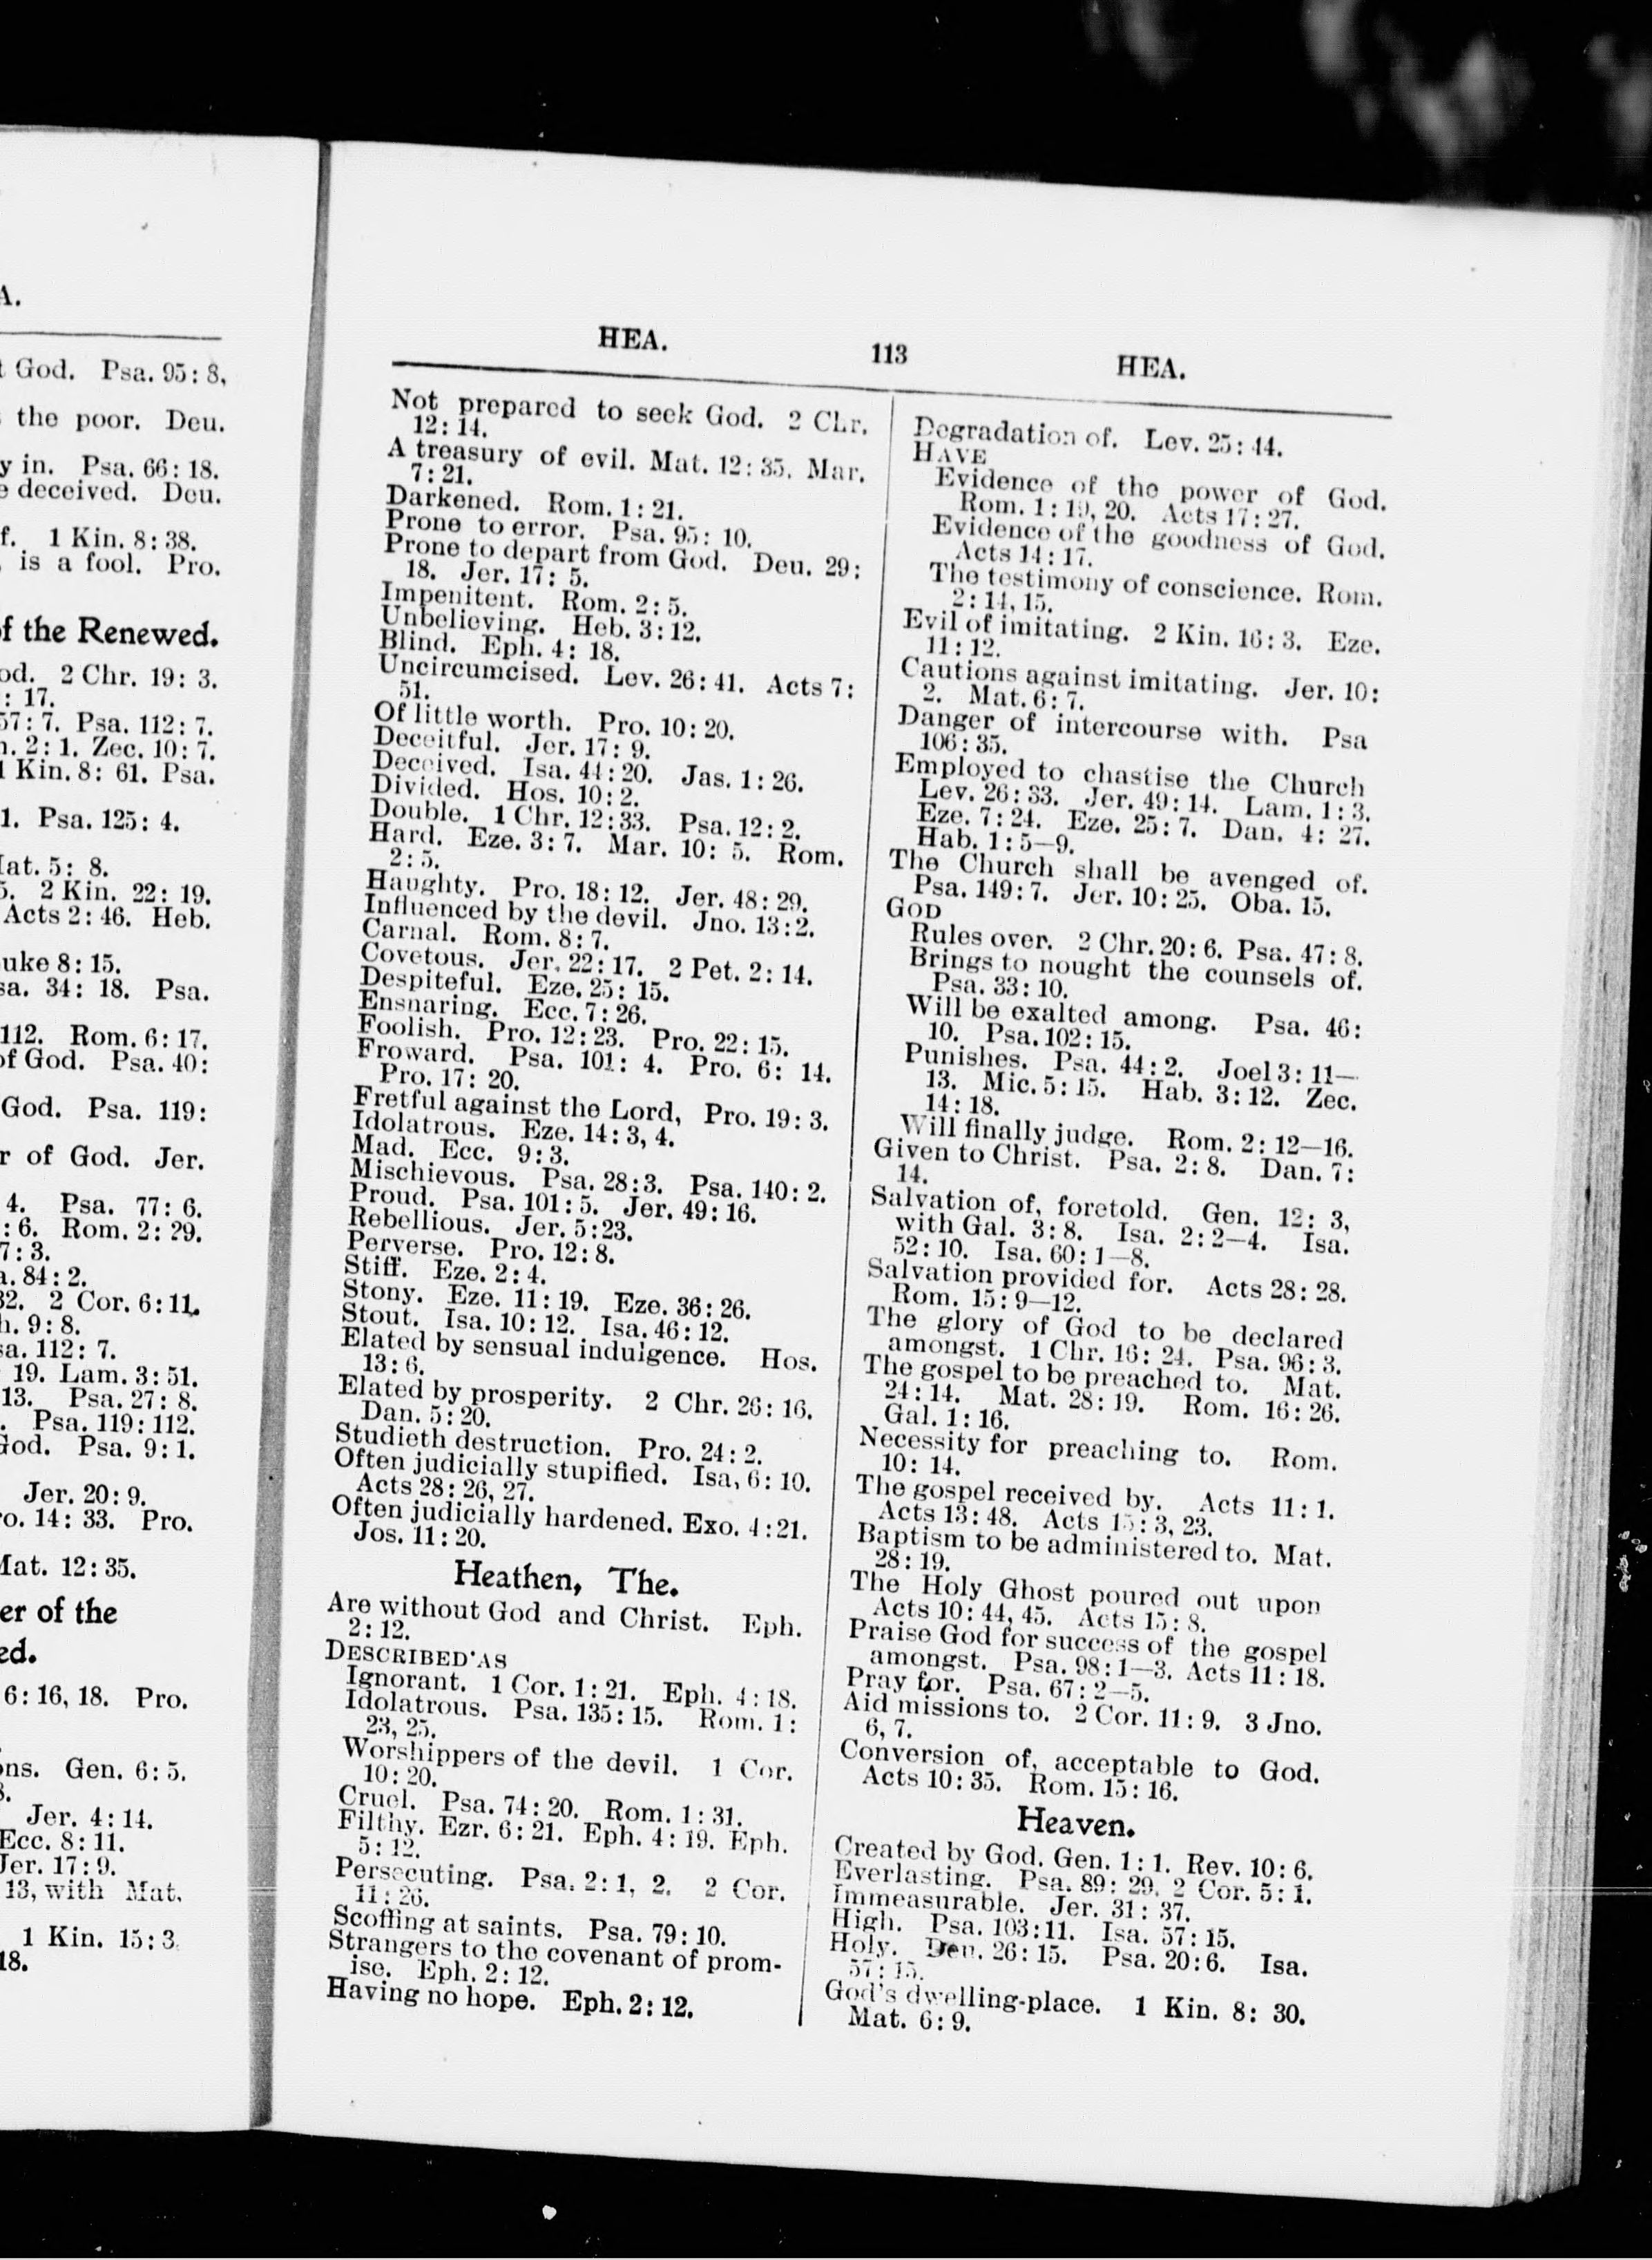 A.
t God. Psa. 95: 8,
the poor. Deu.
y in. Psa. 66: 18.
e deceived. Deu.
f. 1 Kin. 8: 38.
is a fool. Pro.
of the Renewed.
od. 2 Chr. 19: 3.
: 17.
57: 7. Psa. 112: 7.
n. 2: 1. Zec. 10: 7.
1 Kin. 8: 61. Psa.
1. Psa. 125: 4.
Mat. 5: 8.
5. 2 Kin. 22: 19.
Acts 2: 46. Heb.
uke 8: 15.
sa. 34: 18. Psa.
112. Rom. 6: 17.
of God. Psa. 40:
God. Psa. 119:
r of God. Jer.
4. Psa. 77: 6.
: 6. Rom. 2: 29.
7: 3.
a. 84: 2.
32. 2 Cor. 6: 11.
h. 9: 8.
sa. 112: 7.
19. Lam. 3: 51.
13. Psa. 27: 8.
. Psa. 119: 112.
God. Psa. 9: 1.
Jer. 20: 9.
ro. 14: 33. Pro.
Mat. 12: 35.
er of the
ed.
6: 16, 18. Pro.
ons. Gen. 6: 5.
8.
Jer. 4: 14.
Ecc. 8: 11.
Jer. 17: 9.
13, with Mat.
1 Kin. 15: 3.
18.
HEA. 113 HEA.
Not prepared to seek God. 2 Chr.
12: 14.
A treasury of evil. Mat. 12: 35. Mar.
7: 21.
Darkened. Rom. 1: 21.
Prone to error. Psa. 95: 10.
Prone to depart from God. Deu. 29:
18. Jer. 17: 5.
Impenitent. Rom. 2: 5.
Unbelieving. Heb. 3: 12.
Blind. Eph. 4: 18.
Uncircumcised. Lev. 26: 41. Acts 7:
51.
Of little worth. Pro. 10: 20.
Deceitful. Jer. 17: 9.
Deceived. Isa. 44: 20. Jas. 1: 26.
Divided. Hos. 10: 2.
Double. 1 Chr. 12: 33. Psa. 12: 2.
Hard. Eze. 3: 7. Mar. 10: 5. Rom.
2: 5.
Haughty. Pro. 18: 12. Jer. 48: 29.
Influenced by the devil. Jno. 13: 2.
Carnal. Rom. 8: 7.
Covetous. Jer. 22: 17. 2 Pet. 2: 14.
Despiteful. Eze. 25: 15.
Ensnaring. Ecc. 7: 26.
Foolish. Pro. 12: 23. Pro. 22: 15.
Froward. Psa. 101: 4. Pro. 6: 14.
Pro. 17: 20.
Fretful against the Lord, Pro. 19: 3.
Idolatrous. Eze. 14: 3, 4.
Mad. Ecc. 9: 3.
Mischievous. Psa. 28: 3. Psa. 140: 2.
Proud. Psa. 101: 5. Jer. 49: 16.
Rebellious. Jer. 5: 23.
Perverse. Pro. 12: 8.
Stiff. Eze. 2: 4.
Stony. Eze. 11: 19. Eze. 36: 26.
Stout. Isa. 10: 12. Isa. 46: 12.
Elated by sensual indulgence. Hos.
13: 6.
Elated by prosperity. 2 Chr. 26: 16.
Dan. 5: 20.
Studieth destruction. Pro. 24: 2.
Often judicially stupified. Isa, 6: 10.
Acts 28: 26, 27.
Often judicially hardened. Exo. 4: 21.
Jos. 11: 20.
Heathen, The.
Are without God and Christ. Eph.
2: 12.
DESCRIBED AS
Ignorant. 1 Cor. 1: 21. Eph. 4: 18.
Idolatrous. Psa. 135: 15. Rom. 1:
23, 25.
Worshippers of the devil. 1 Cor.
10: 20.
Cruel. Psa. 74: 20. Rom. 1: 31.
Filthy. Ezr. 6: 21. Eph. 4: 19. Eph.
5: 12.
Persecuting. Psa. 2: 1, 2. 2 Cor.
11: 26.
Scoffing at saints. Psa. 79: 10.
Strangers to the covenant of prom-
ise. Eph. 2: 12.
Having no hope. Eph. 2: 12.
Degradation of. Lev. 25: 44.
HAVE
Evidence of the power of God.
Rom. 1: 19, 20. Acts 17: 27.
Evidence of the goodness of God.
Acts 14: 17.
The testimony of conscience. Rom.
2: 14, 15.
Evil of imitating. 2 Kin. 16: 3. Eze.
11: 12.
Cautions against imitating. Jer. 10:
2. Mat. 6: 7.
Danger of intercourse with. Psa
106: 35.
Employed to chastise the Church
Lev. 26: 33. Jer. 49: 14. Lam. 1: 3.
Eze. 7: 24. Eze. 25: 7. Dan. 4: 27.
Hab. 1: 5—9.
The Church shall be avenged of.
Psa. 149: 7. Jer. 10: 25. Oba. 15.
GOD
Rules over. 2 Chr. 20: 6. Psa. 47: 8.
Brings to nought the counsels of.
Psa. 33: 10.
Will be exalted among. Psa. 46:
10. Psa. 102: 15.
Punishes. Psa. 44: 2. Joel 3: 11—
13. Mic. 5: 15. Hab. 3: 12. Zec.
14: 18.
Will finally judge. Rom. 2: 12—16.
Given to Christ. Psa. 2: 8. Dan. 7:
14.
Salvation of, foretold. Gen. 12: 3,
with Gal. 3: 8. Isa. 2: 2—4. Isa.
52: 10. Isa. 60: 1—8.
Salvation provided for. Acts 28: 28.
Rom. 15: 9—12.
The glory of God to be declared
amongst. 1 Chr. 16: 24. Psa. 96: 3.
The gospel to be preached to. Mat.
24: 14. Mat. 28: 19. Rom. 16: 26.
Gal. 1: 16.
Necessity for preaching to. Rom.
10: 14.
The gospel received by. Acts 11: 1.
Acts 13: 48. Acts 15: 3, 23.
Baptism to be administered to. Mat.
28: 19.
The Holy Ghost poured out upon
Acts 10: 44, 45. Acts 15: 8.
Praise God for success of the gospel
amongst. Psa. 98: 1—3. Acts 11: 18.
Pray for. Psa. 67: 2—5.
Aid missions to. 2 Cor. 11: 9. 3 Jno.
6, 7.
Conversion of, acceptable to God.
Acts 10: 35. Rom. 15: 16.
Heaven.
Created by God. Gen. 1: 1. Rev. 10: 6.
Everlasting. Psa. 89: 29. 2 Cor. 5: 1.
Immeasurable. Jer. 31: 37.
High. Psa. 103: 11. Isa. 57: 15.
Holy. Deu. 26: 15. Psa. 20: 6. Isa.
57: 15.
God's dwelling-place. 1 Kin. 8: 30.
Mat. 6: 9.